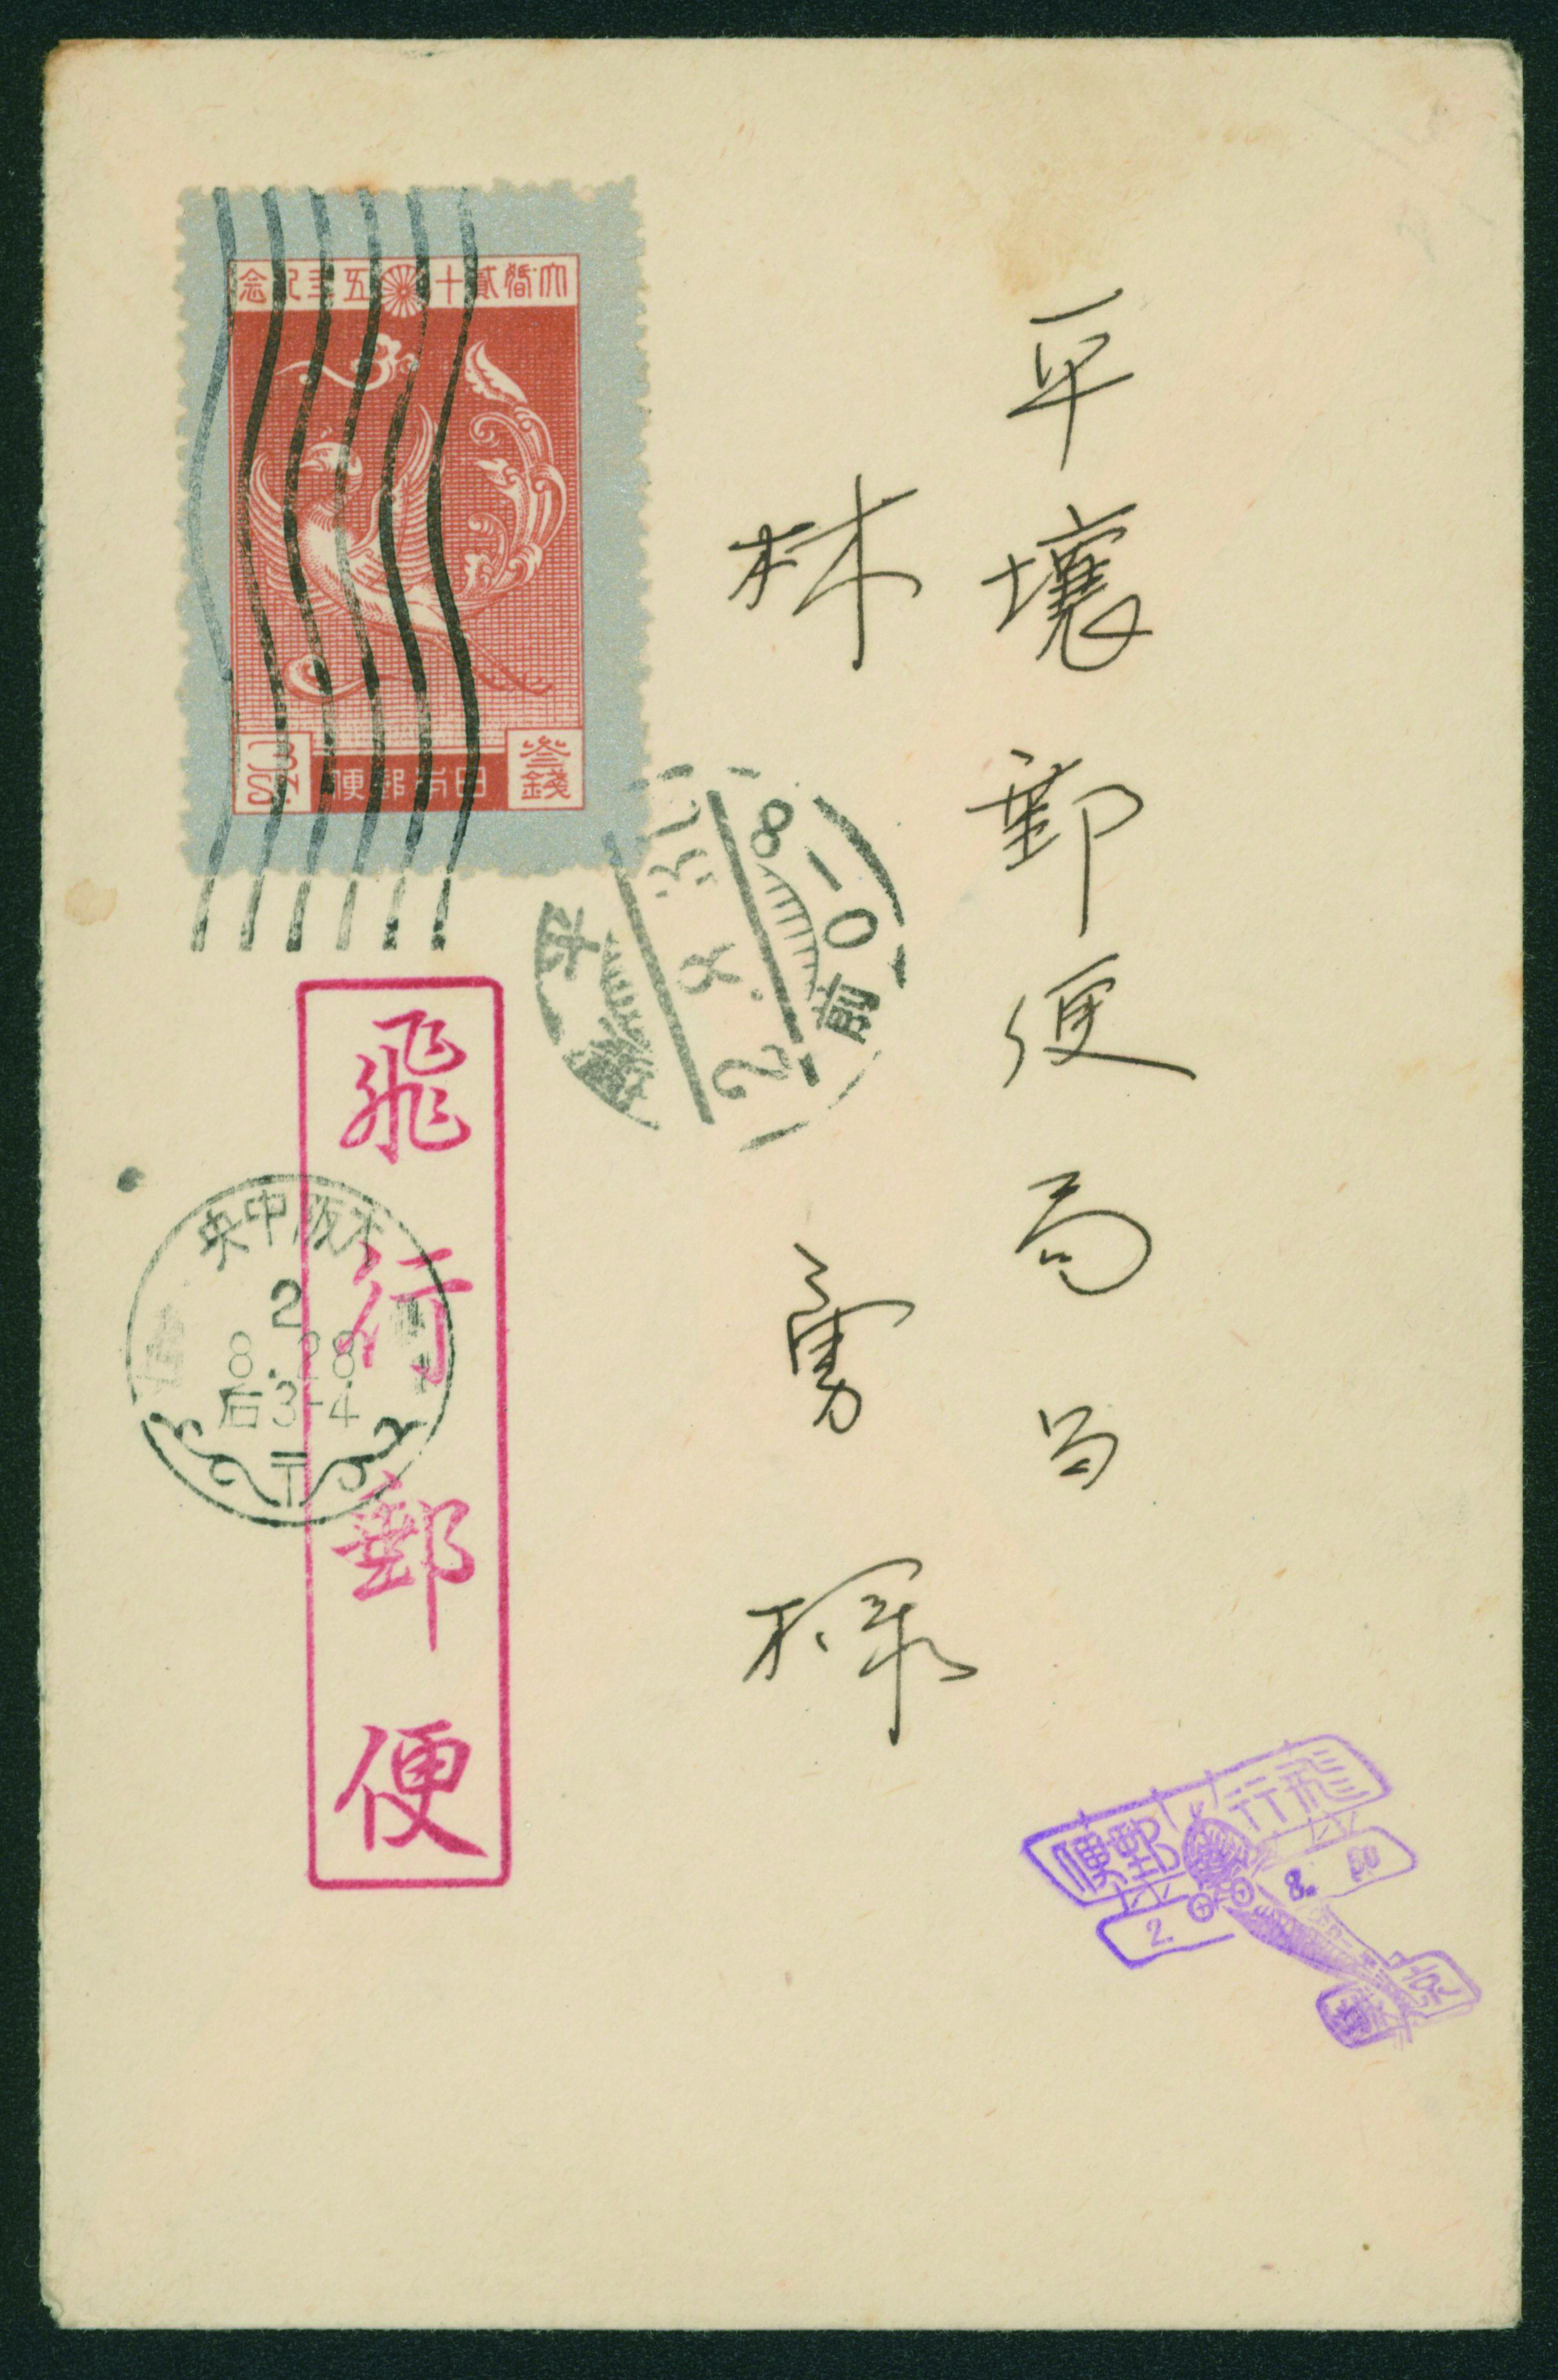 平壤郵便局
林 勇 様
大婚貳十五年紀念
3Sn.
日本郵便
叁錢
平壤
2.9.
前0-8
飛行郵便
大阪中央
2
8.28
后3-4
飛行郵便
2.
8.
京